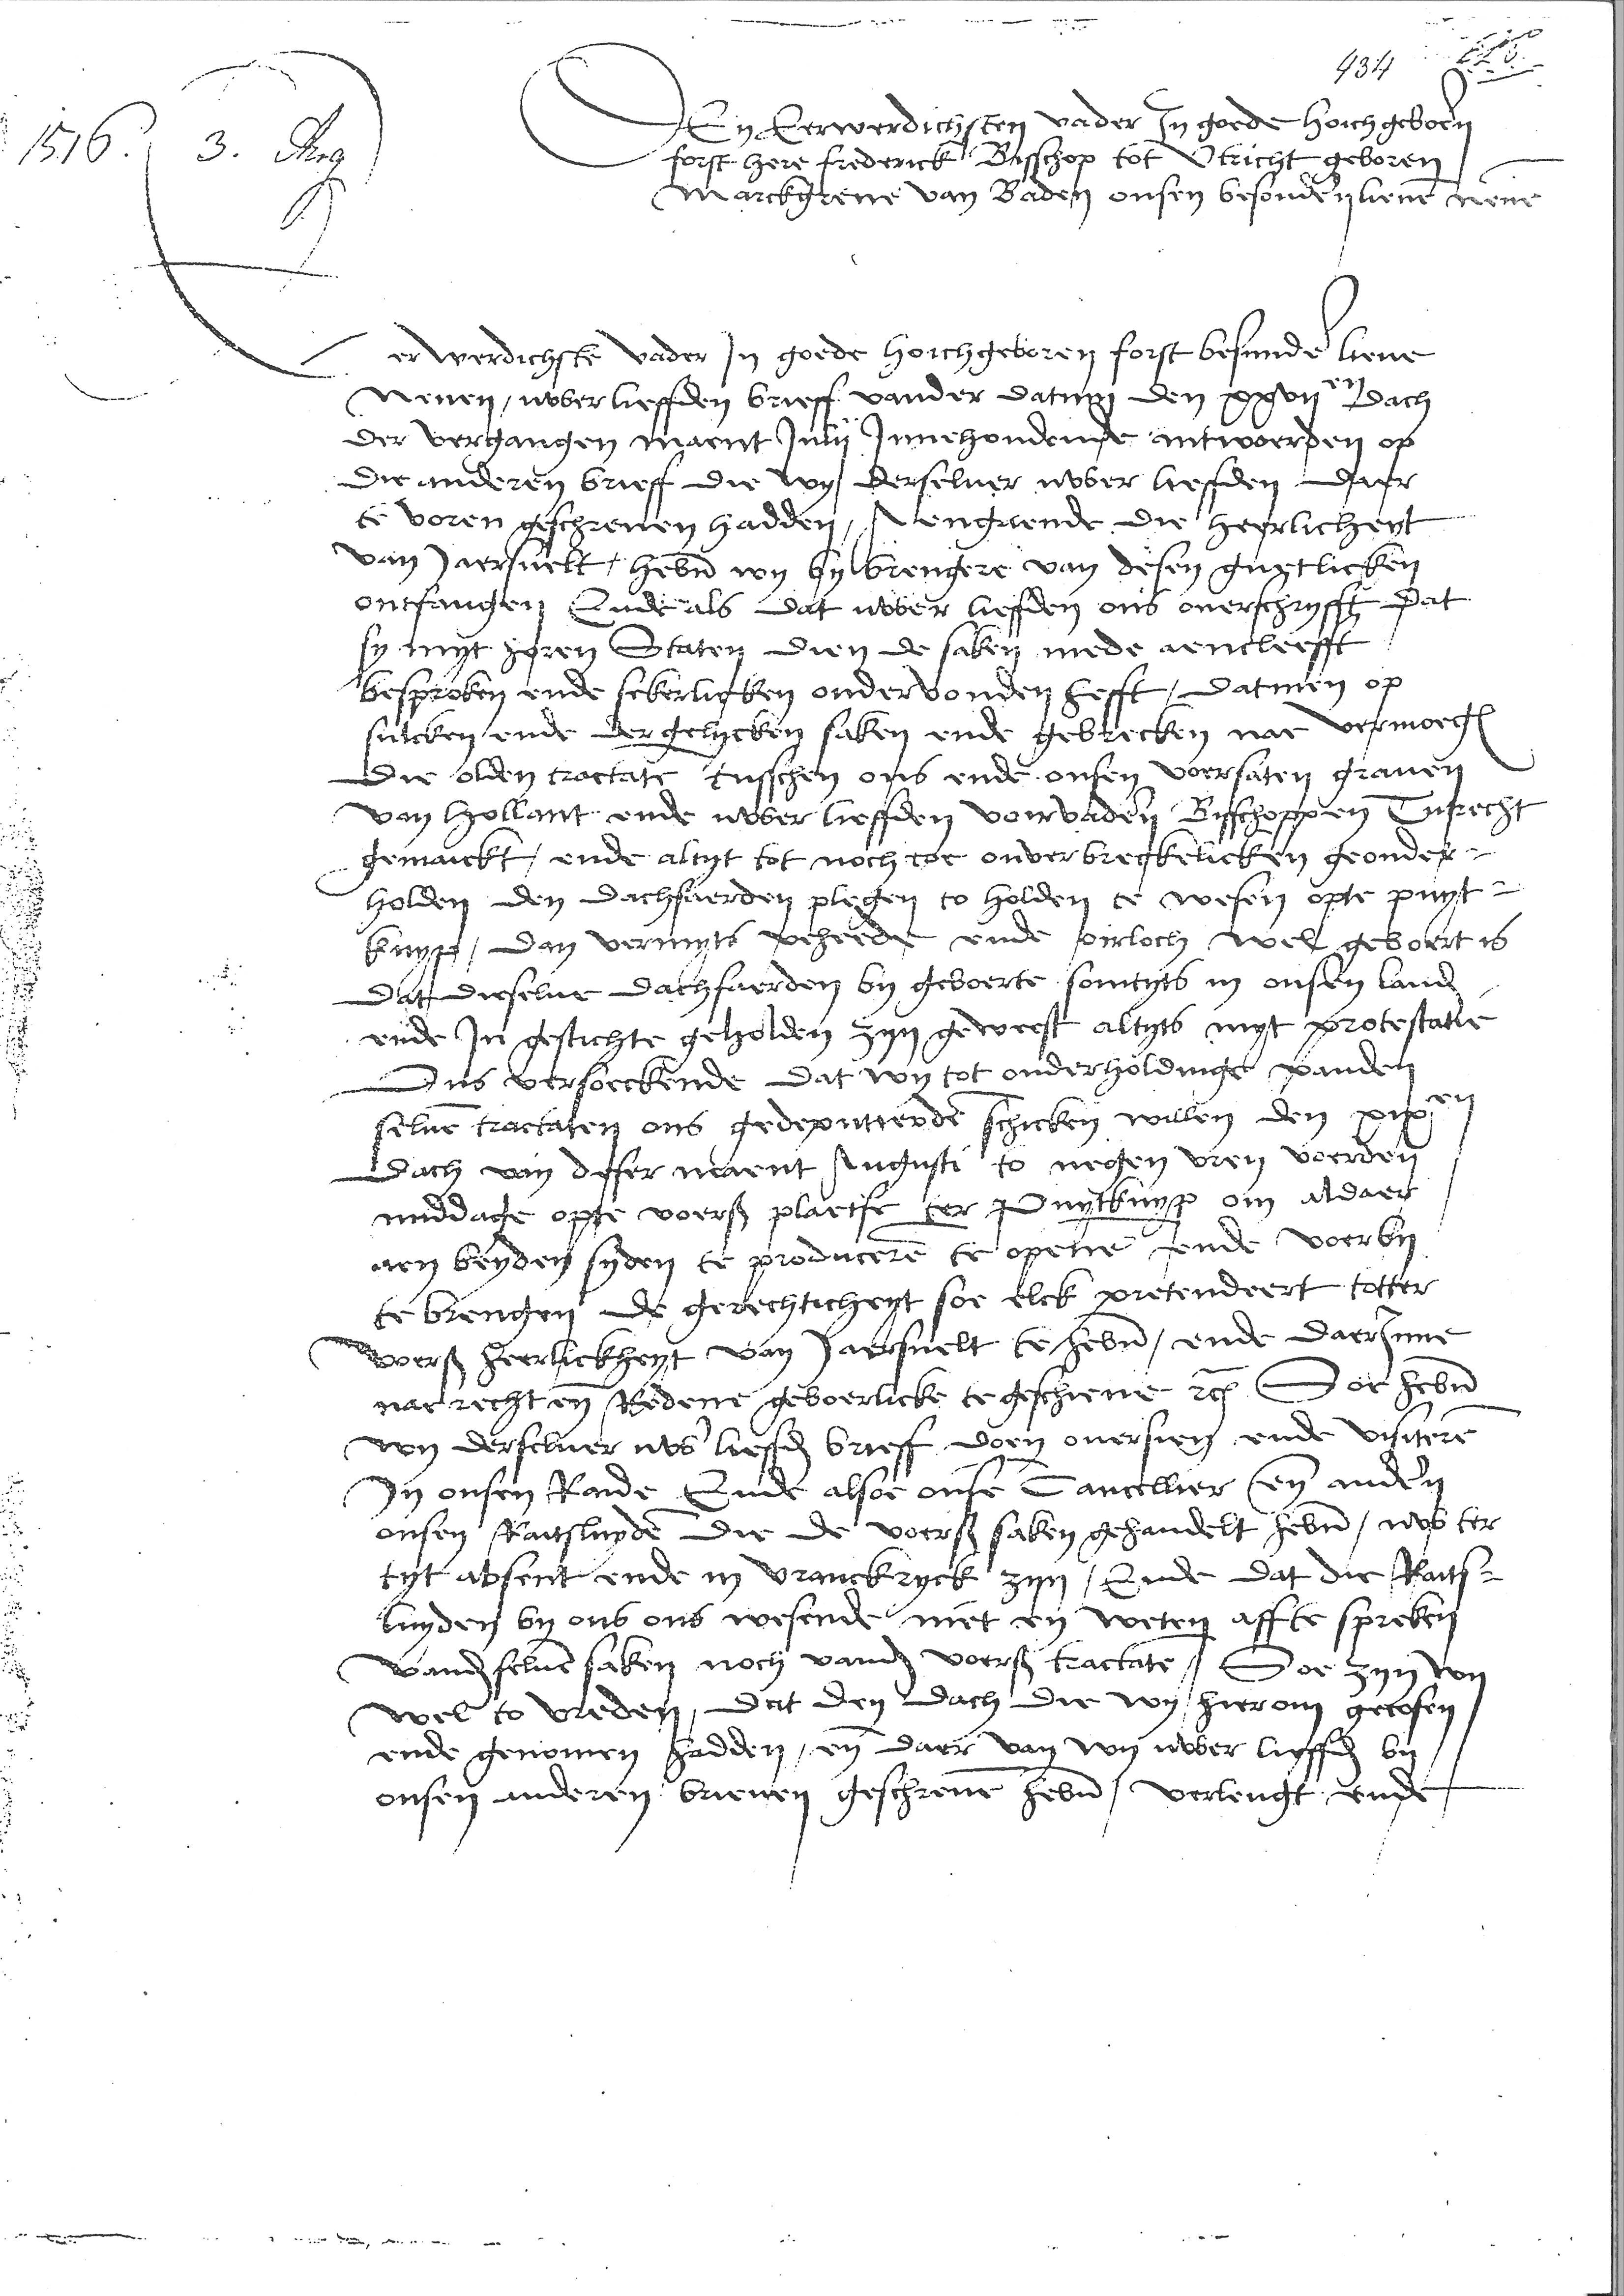 434
1516. 3. Aug
DEn Eerwerdichsten vader In goede hoichgeboren
forst here frederick Bisschop tot Vtricht geboren
Marckgreue van Baden onsen besonderen lieuen neue
Eerwerdichste vader In goede hoichgeboren forst besunder lieue
Neuen / uwer lieffden brieff vander datum den xxvij en dach
der vergangen maent Julij Innehoudende antwoerden op
die anderen brieff die wy derseluer uwer lieffden daer
te voren geschreuen hadden / Aengaende die heerlicheyt
van Jaersuelt / hebn wy by brengere van desen guetlicken
ontfangen Ende als dat uwer lieffden ons ouerschryfft dat
sy myt horen Staten dien de saken mede aencleefft
besproken ende sekerlicken ondervonden hefft / datmen op
sulcken ende dergelycken saken ende gebrecken nae vermoegen
die olden tractate tusschen ons ende onsen voersaten grauen
van Hollant ende uwer lieffden voirvaderen Bisschoppen Tutrecht
gemaickt / ende altyt tot noch toe onverbreckelicken geonder-
holden den dachfaerden plegen to holden te wesen opte puyt-
kuyp / dan vermyts veheede ende oirloch wel geboert is
dat dieselue dachfaerden by geboerte somtyts in onsen lande
ende In gestichte geholden zyn geweest altyts myt protestatie
Dus versoeckende dat wy tot onderholdinge vanden
seluen tractaten ons gedeputeerden schicken willen den xix en
dach van deser maent Augusti to negen vren voerden
middage opte voers plaetse ter Puytkuyp om aldaer
aen beyden syden te produceren te openen ende voerby
te brengen de gerechticheyt soe elck pretendeert totter
voers heerlickheyt van Jaersuelt te hebn / ende daerInne
nae recht en Redene geboerlicke te geschiene etc Soe hebn
wy derseluer uwer lieffden brieff doen ouersien ende visiteren
In onsen Raide Ende alsoe onse Cancellier en anderen
onsen Raitsluyden die de voers saken gehandelt hebn / nv ter
tyt absent ende in vranckryck zyn / Ende dat die Raits-
luyden by ons ons wesende niet en weten aff te spreken
vanden seluen saken noch vanden voers tractate / Soe zyn wy
wel to vreden / dat den dach die wy hierom gecosen
ende genomen hadden / en daer van wy uwer lieffden by
onsen anderen brieuen geschreuen hebn / verlengt ende